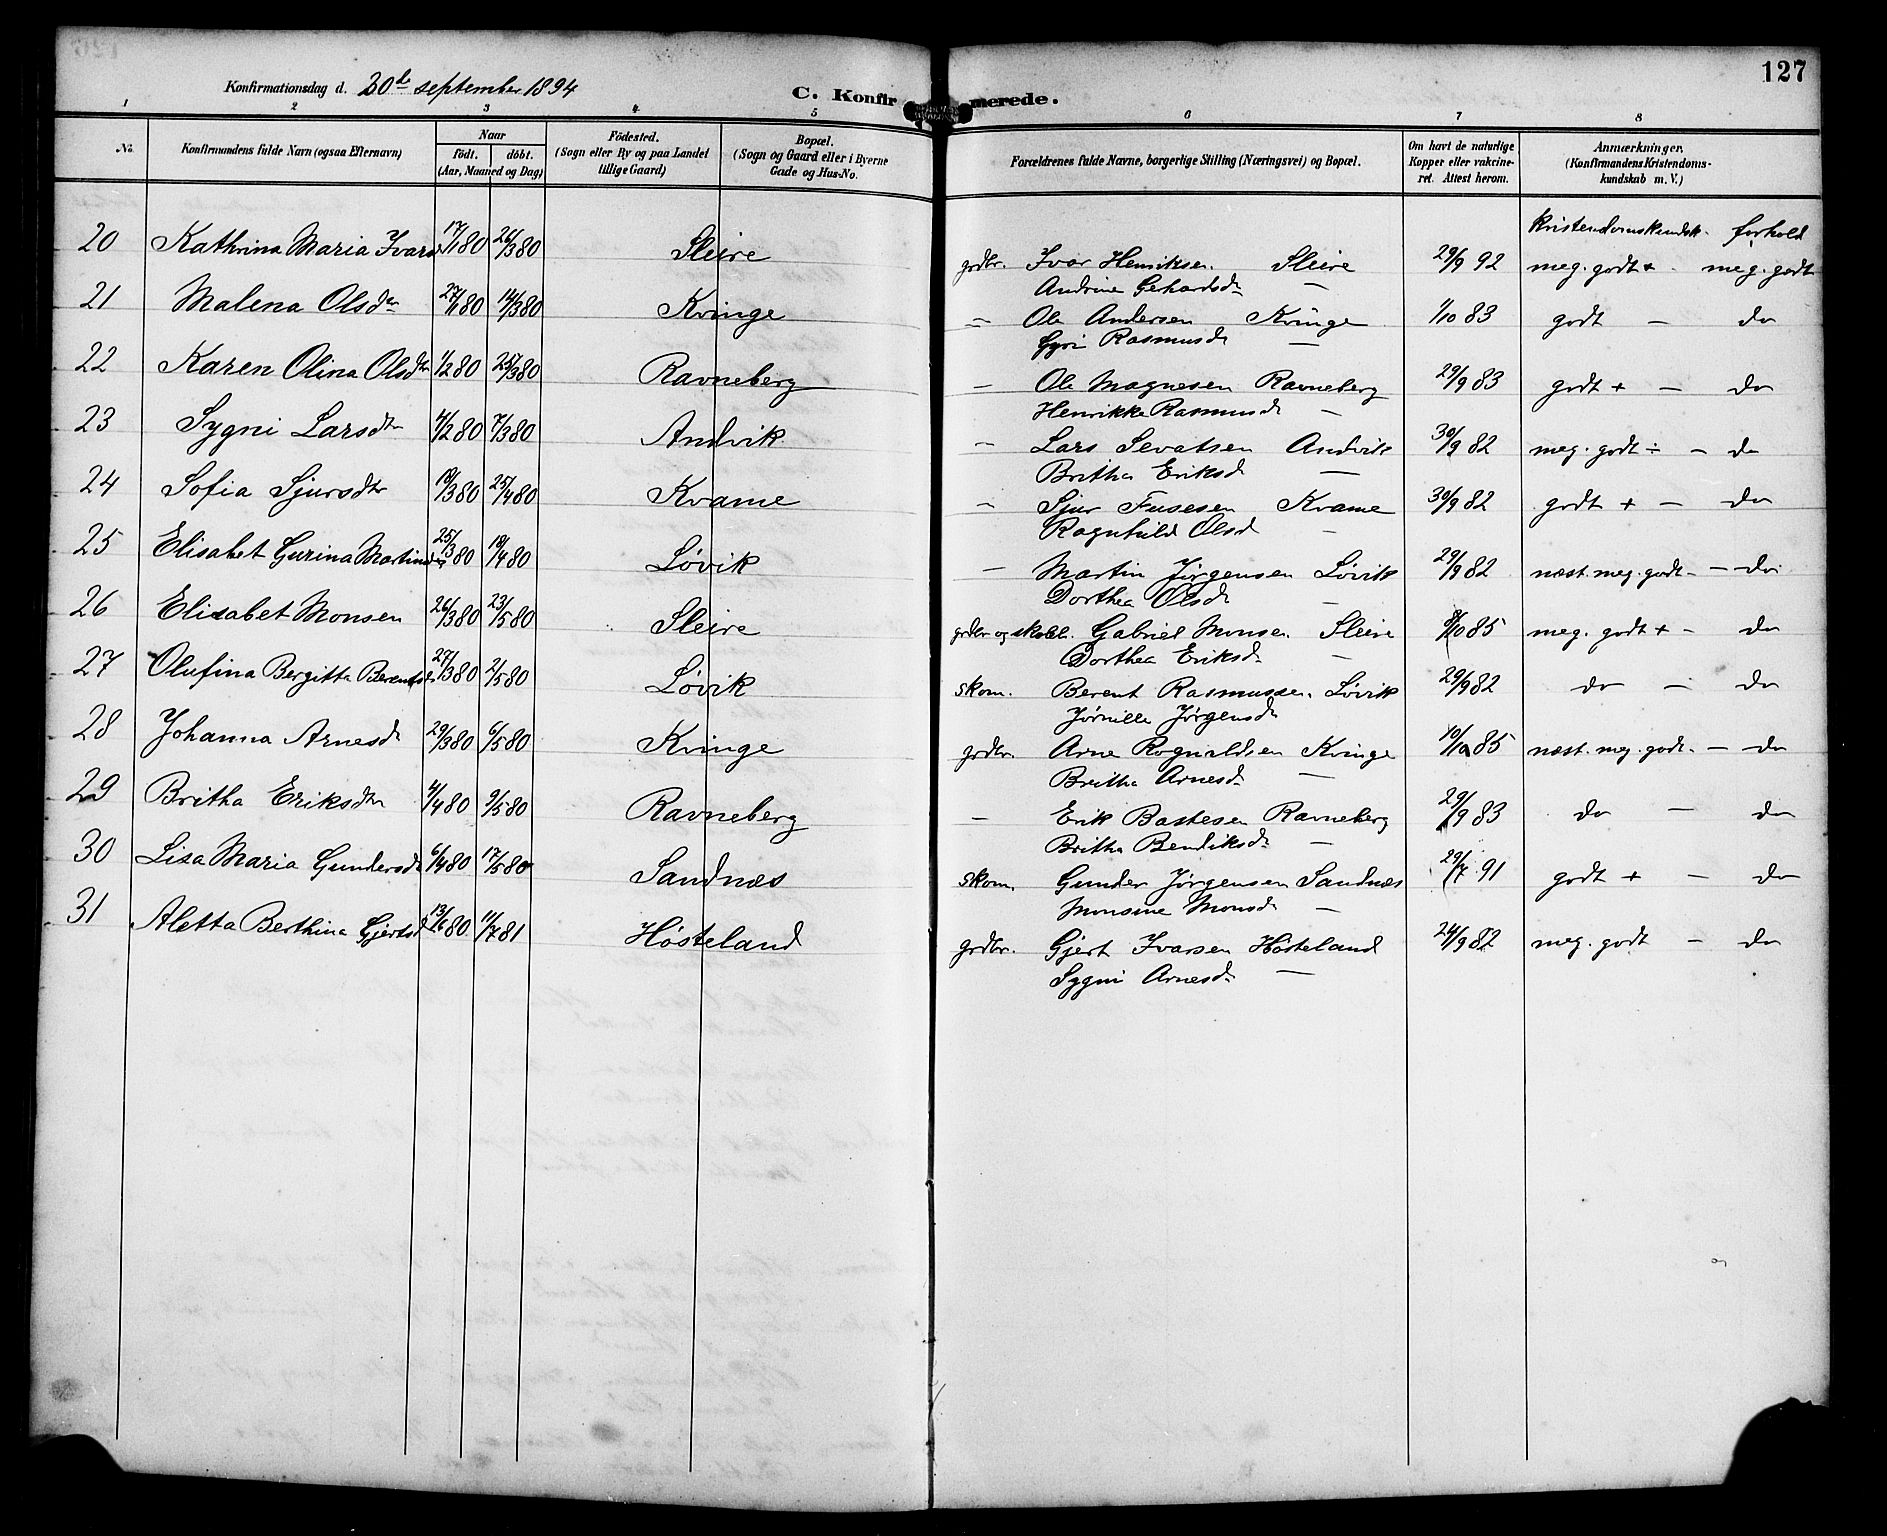 127
Konfirmationsdag d. 30d september 1894
C. Konfirmerede.
1 2 3 4 5 6 7 8
No.
Konfirmandens fulde Navn (ogsaa Efternavn)
Naar
födt. döbt.
(Aar, Maaned og Dag)
Födested.
(Sogn eller By og paa Landet
tillige Gaard)
Bopæl.
(Sogn og Gaard eller i Byerne
Gade og Hus-No.
Forældrenes fulde Navne, borgerlige Stilling (Næringsvei) og Bopæl.
Om havt de naturlige
Kopper eller vakcine-
ret. Attest herom.
Anmærkninger.
(Konfirmandens Kristendoms-
kundskab m. V.)
kristendomskundsk. forhold
20 Kathrina Maria Ivarsd 17/1 80 26/3 80 Sleire grdbr. Ivar Henriksen Sleire 29/9 92 meg. godt + - meg. godt
Andrine Gerhardsdr —
21 Malena Olsdr 27/1 80 14/3 80 Kvinge — Ole Andersen Kvinge 1/10 83 godt — do
Gyri Rasmusdr —
22 Karen Olina Olsdtr 1/2 80 25/3 80 Ravneberg — Ole Magnesen Ravneberg 29/9 83 godt + — do
Henrikke Rasmusdr —
23 Sygni Larsdtr 4/2 80 7/3 80 Andvik — Lars Sevatsen Andvik 30/9 82 meg. godt ÷ — do
Britha Eriksd —
24 Sofia Sjursdtr 19/3 80 25/4 80 Kvame — Sjur Fusesen Kvame 30/9 82 godt + — do
Ragnhild Olsd —
25 Elisabet Gurina Martinsdtr 25/3 80 18/4 80 Løvik — Martin Jørgensen Løvik 29/9 82 næst. meg. godt — do
Dorthea Olsdr —
26 Elisabet Monsen 26/3 80 23/5 80 Sleire grdbr og skolel. Gabriel Monsen Sleire 8/10 85 meg. godt + — do
Dorthea Eriksdr —
27 Olufina Bergitta Berentsdr 27/3 80 2/5 80 Løvik skom. Berent Rasmussen Løvik 29/9 82 do — do
Jørnille Jørgensdr
28 Johanna Arnesdr 29/3 80 6/5 80 Kvinge grdbr. Arne Rognaldsen Kvinge 10/10 85 næst. meg. godt. — do
Britha Arnesdr —
29 Britha Eriksdtr 4/4 80 9/5 80 Ravneberg — Erik Bastesen Ravneberg 29/9 83 do — do
Britha Bendiksdr —
30 Lisa Maria Gundersdr 6/4 80 17/5 80 Sandnæs skom. Gunder Jørgensen Sandnæs 29/7 91 godt + — do
Monsine Monsdr —
31 Aletta Berthina Gjertsd 13/6 80 11/7 81 Hösteland grdbr. Gjert Ivarsen Hösteland 24/9 82 meg. godt — do
Sygni Arnesdr —